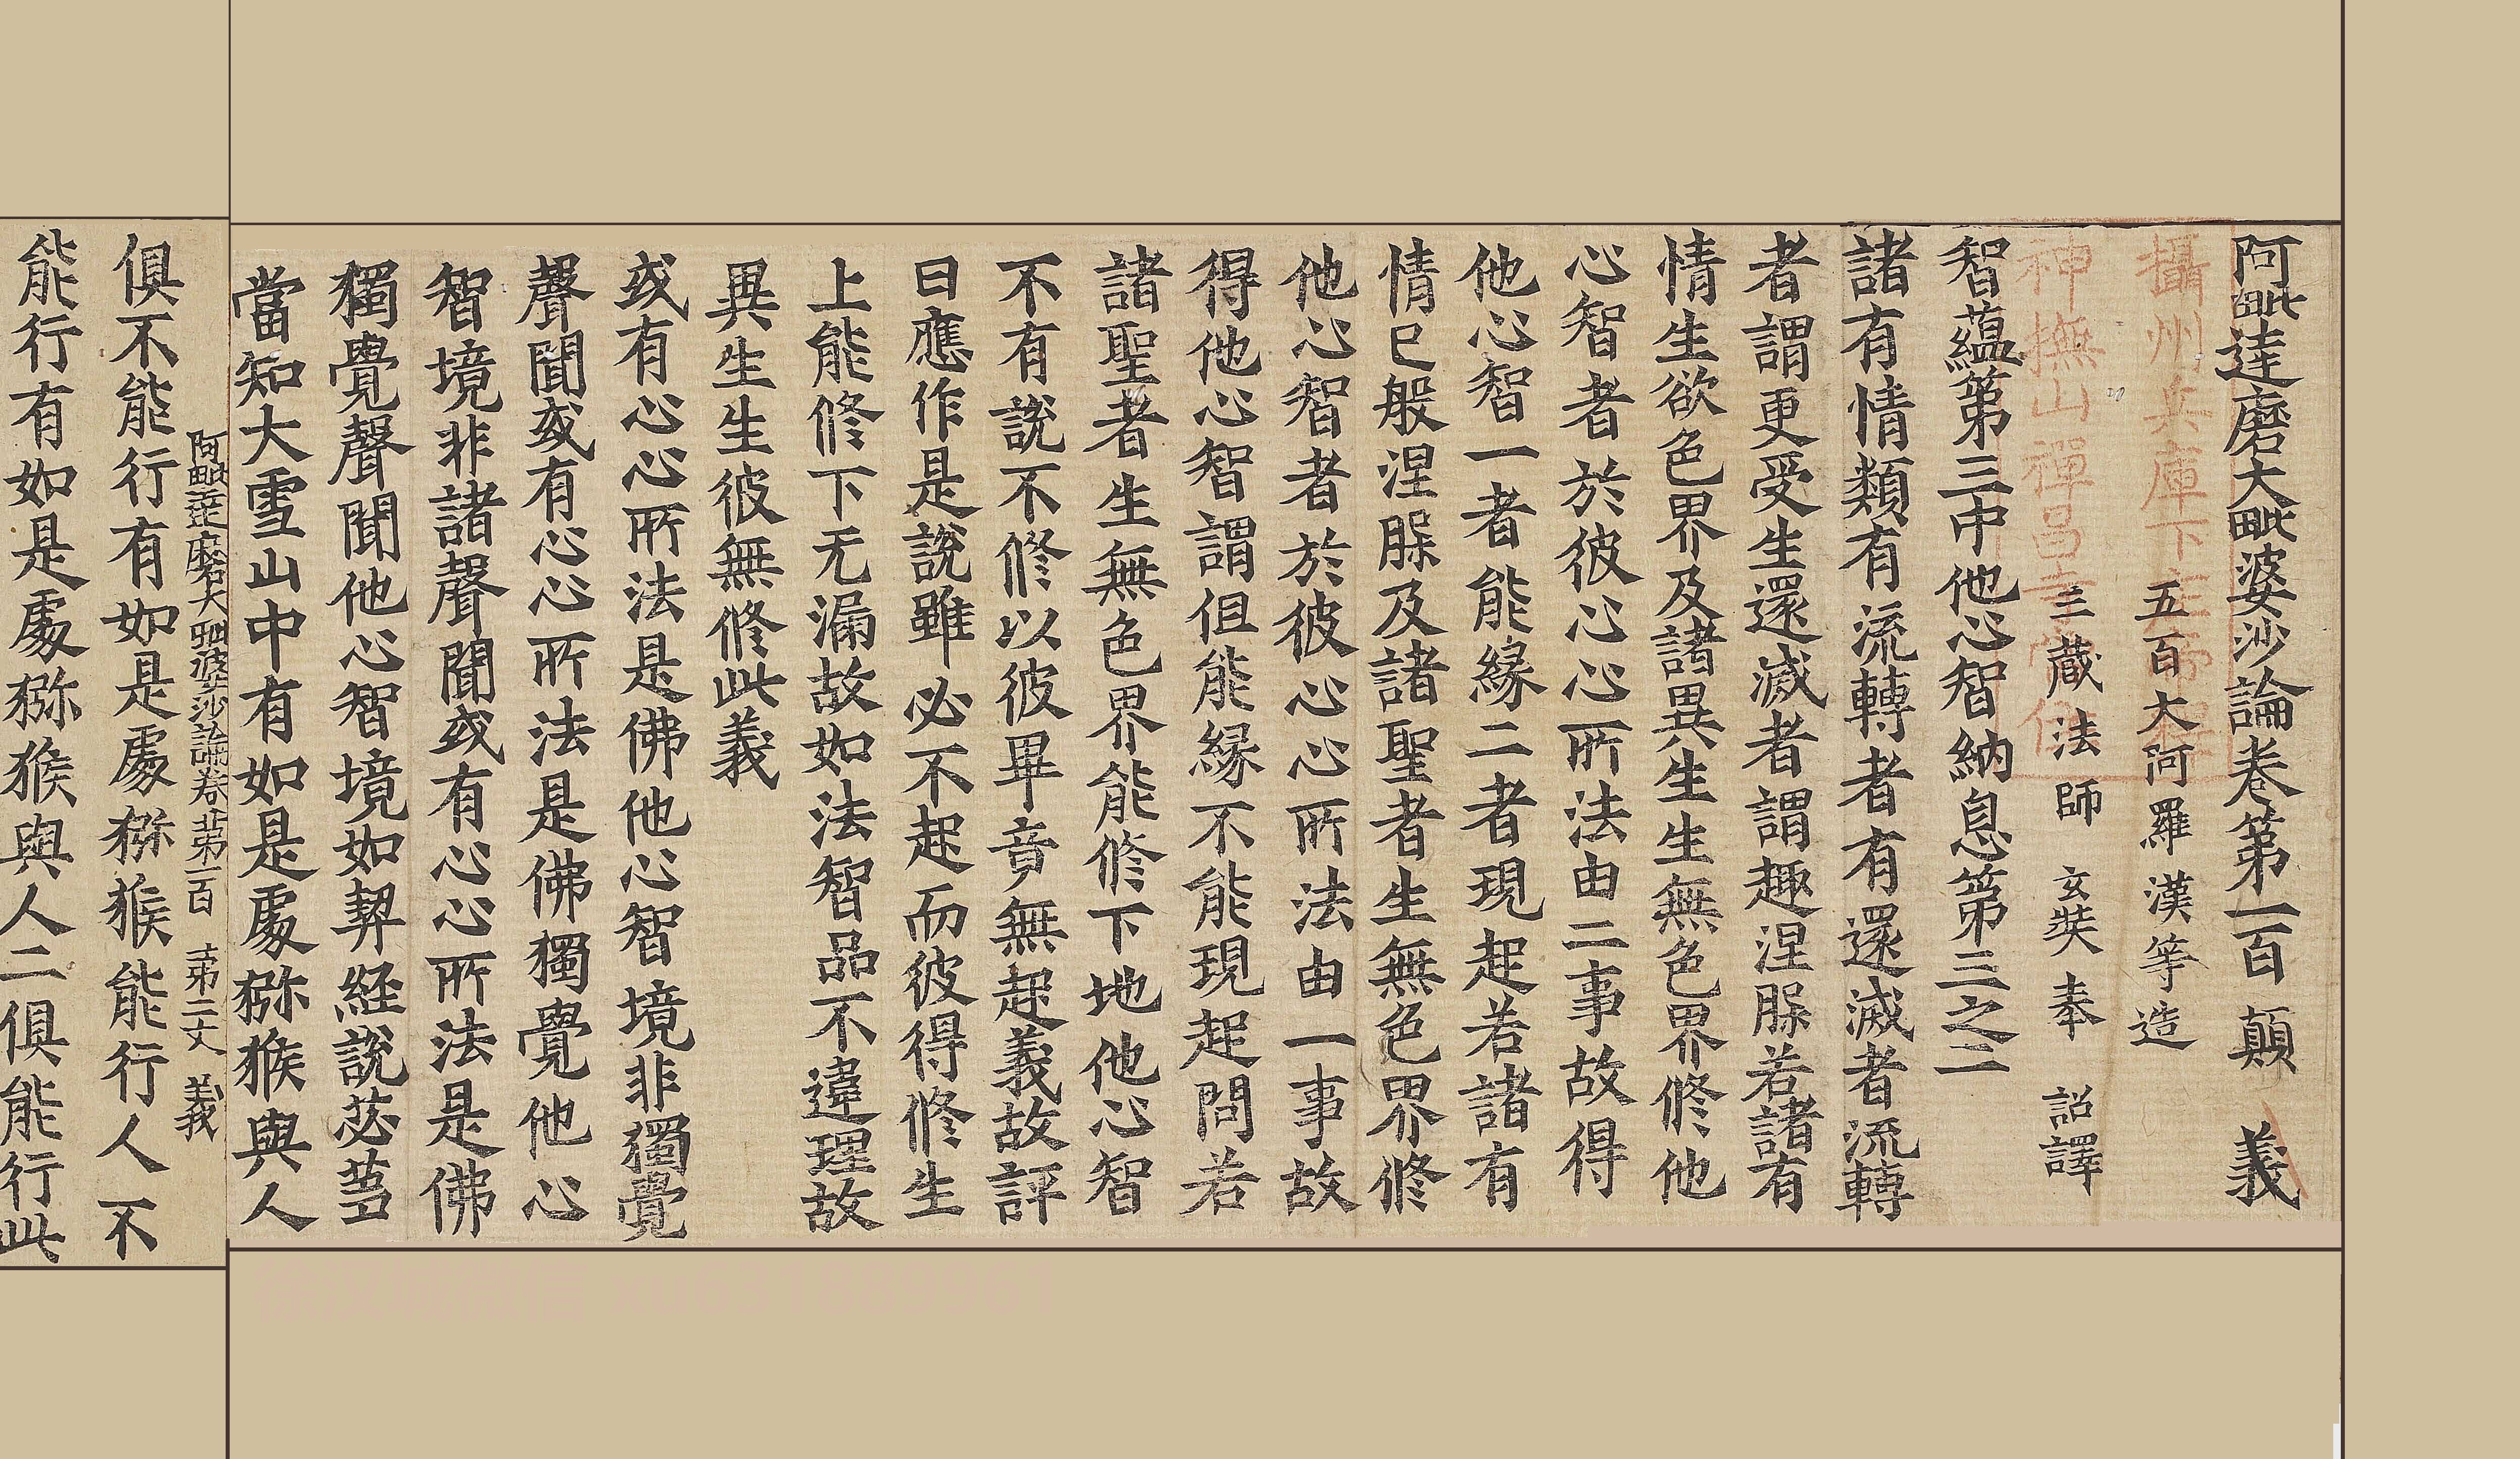 阿毗達磨大毗婆沙論卷第一百 顛 義
五百大阿羅漢等造
三藏法師 玄奘 奉 詔譯
智蘊第三中他心智納息第三之二
諸有情類有流轉者有還滅者流轉
者謂更受生還滅者謂趣涅脲若諸有
情生欲色界及諸異生生無色界修他
心智者於彼心心所法由二事故得
他心智一者能緣二者現起若諸有
情已般涅脲及諸聖者生無色界修
他心智者於彼心心所法由一事故
得他心智謂但能緣不能現起問若
諸聖者生無色界能修下地他心智
不有說不修以彼畢竟無起義故評
曰應作是說雖必不起而彼得修生
上能修下无漏故如法智品不違理故
異生生彼無修此義
或有心心所法是佛他心智境非獨覺
聲聞或有心心所法是佛獨覺他心
智境非諸聲聞或有心心所法是佛
獨覺聲聞他心智境如契經說苾蒭
當知大雪山中有如是處猕猴與人
阿毗達磨大毗婆沙論卷第一百 十一 第二丈 義
俱不能行有如是處猕猴能行人不
能行有如是處猕猴與人二俱能行此
攝州兵庫下庄
神撫山禪昌寺常住